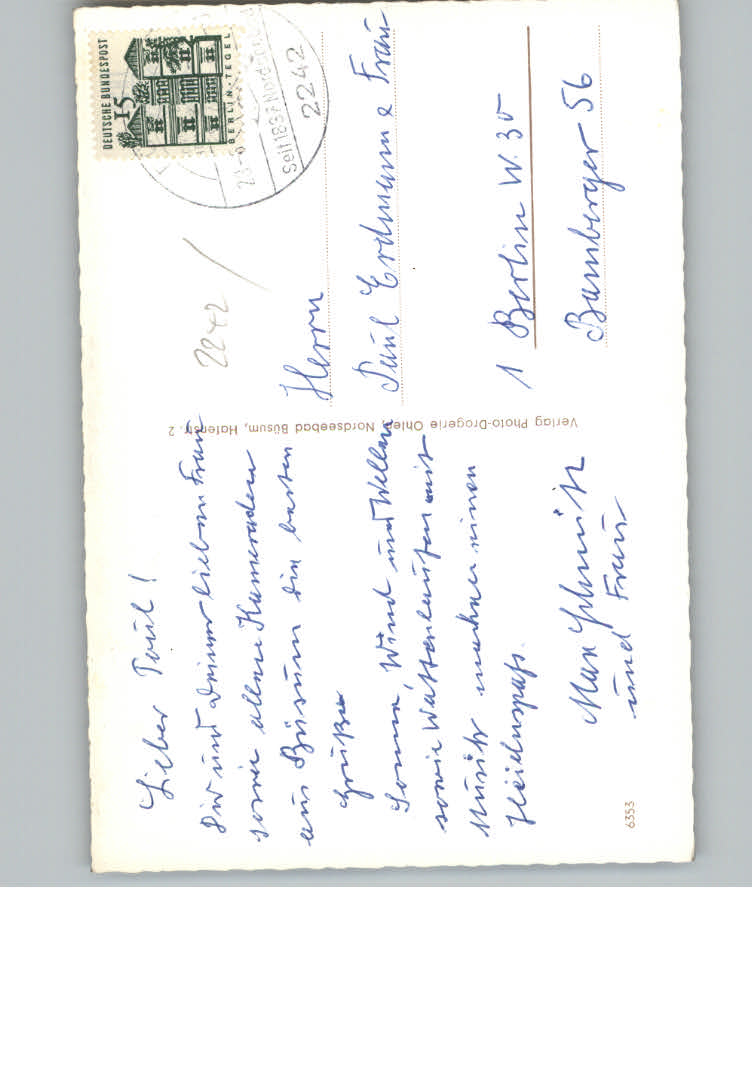 Lieber Paul!
Dir und Deiner lieben Frau
sowie allen Kameraden
aus Büsum die besten
Grüße
Sonne, Wind und Wellen
sowie Wattenlaufen mit
Musik machen einen
Heidenspaß.
Max Schmitz
und Frau
6353
Verlag Photo-Drogerie Ohlen, Nordseebad Büsum, Hafenstr. 2
DEUTSCHE BUNDESPOST
15
BERLIN-TEGEL
Seit 1837 Nord
2242
2242
Herrn
Paul Erdmann & Frau
1 Berlin W. 30
Bamberger 56